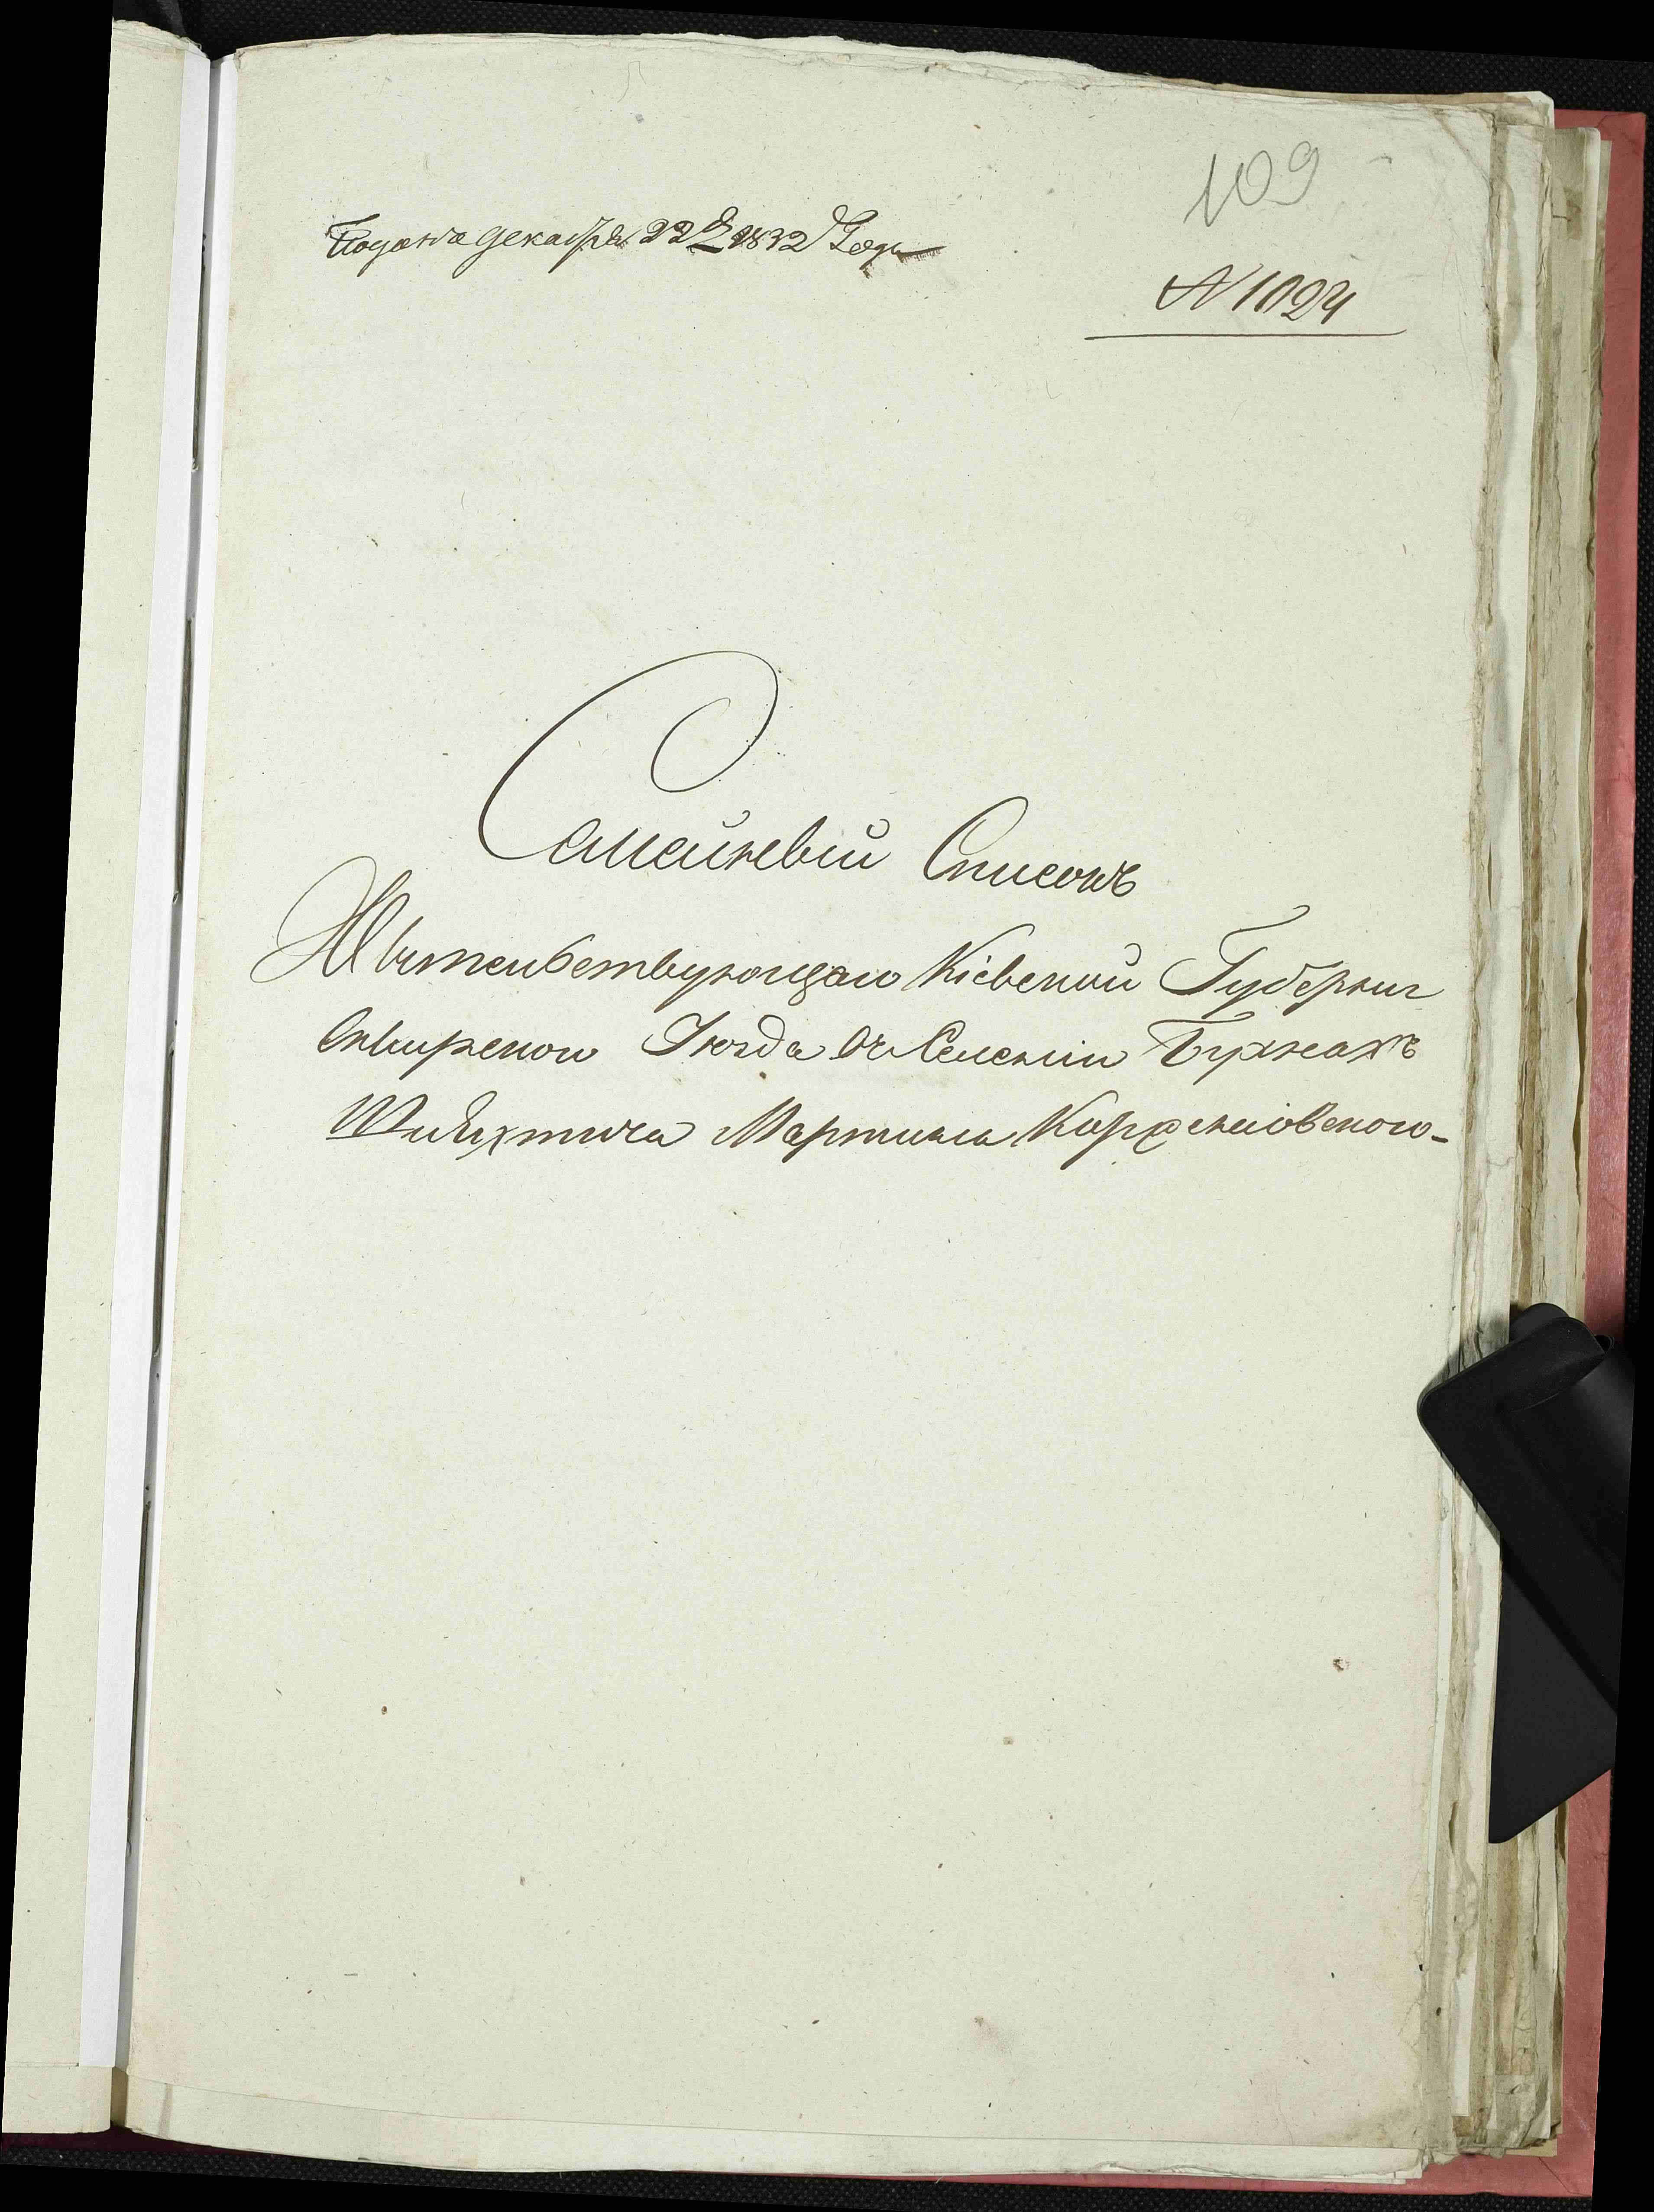 109
Подана декабря 22 д 1832 Года
N 1024
Семейный Списокъ
Жительствующаго Кіевской Губерніи
Сквирского Уезда въ Селеніи Бужкахъ
Шляхтича Мартина Корженіовского